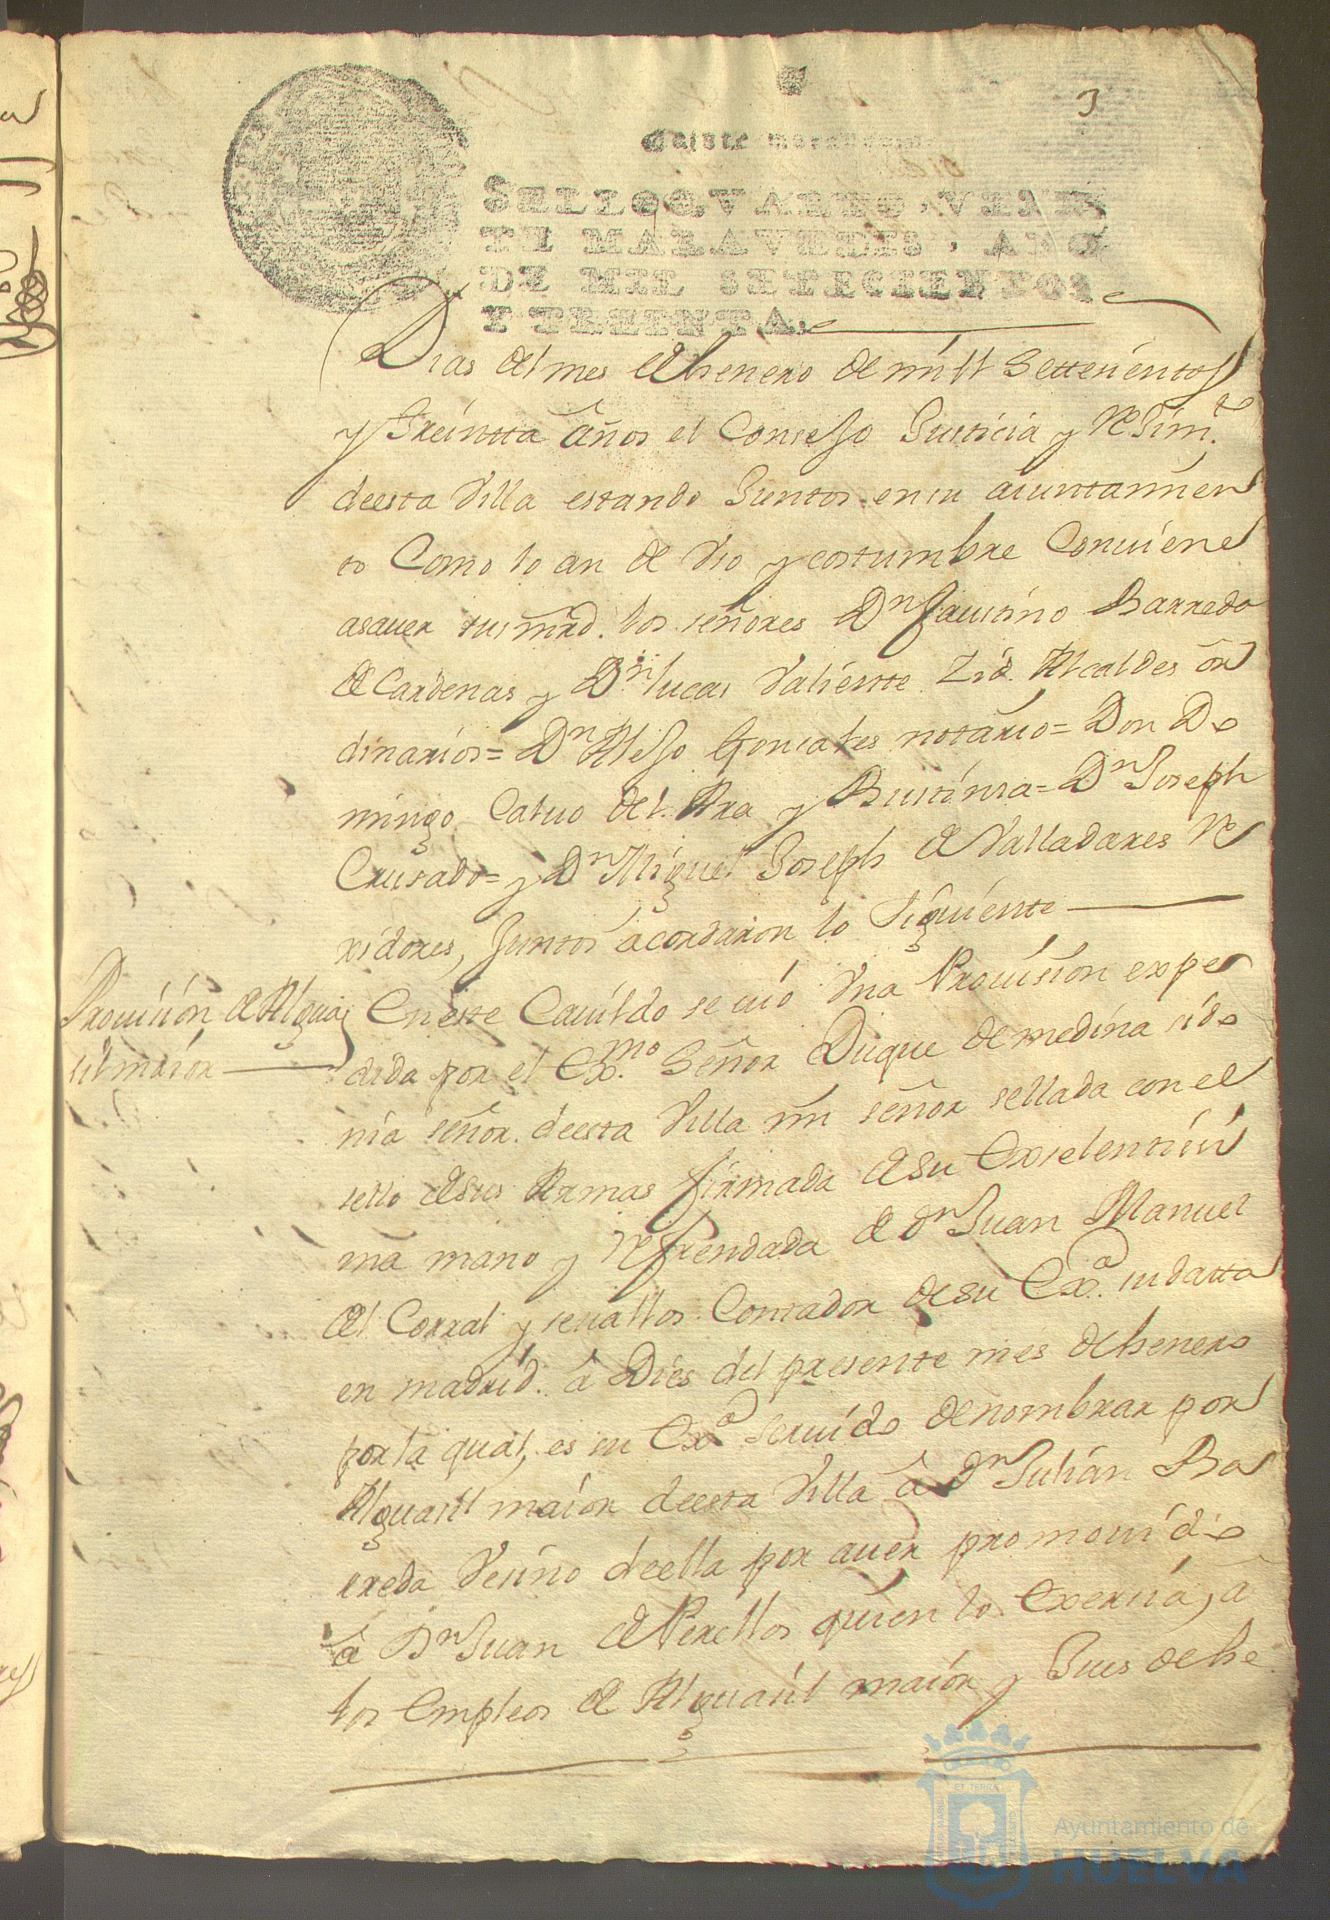 3
Veinte maravedis
SELLO QVARTO, VEIN
TE MARAVEDIS, AÑO
DE MIL SETECIENTOS
Y TREINTA.
Dias del mes de henero de mill Settecientos
y Treintta años el Consejo Justicia y Rejim.to
deesta Villa estando Juntos en su aiuntamien
to Como lo an de Vso y costumbre Conuiene
asauer sus mrd. los señores Dn faustino Barreda
de Cardenas y Dn lucas Valiente Zid. Alcaldes or
dinarios= Dn Alejo Gonsales notario= Don Do
mingo Caluo del. Rra y Bustinsa= Dn Joseph
Crusado= y Dn Miguel Joseph de Valladares Re
xidores, Juntos acordaron lo siguiente
Prouision de Algua
sil maior
En este Cauildo se uió Vna Prouision expe
dida por el Ex.mo Señor Duque de medina sido
nia señor deesta Villa mi señor sellada con el
sello de sus Armas firmada de su Exselentisi
ma mano y refrendada de dn Juan Manuel
del Corral y seuallos Contador de su Ex.a su datta
en madrid. a Dies del presente mes de henero
por la qual, es su Ex.a seruido de nombrar por
Alguasil maior deesta Villa â dn Julian Ba
rreda Vesino deella por auer promouido
a Dn Juan de Perellos quien lo Exersia, a
los Empleos de Alguasil maior y Jues de he
ET TERRA
Ayuntamiento de
HUELVA